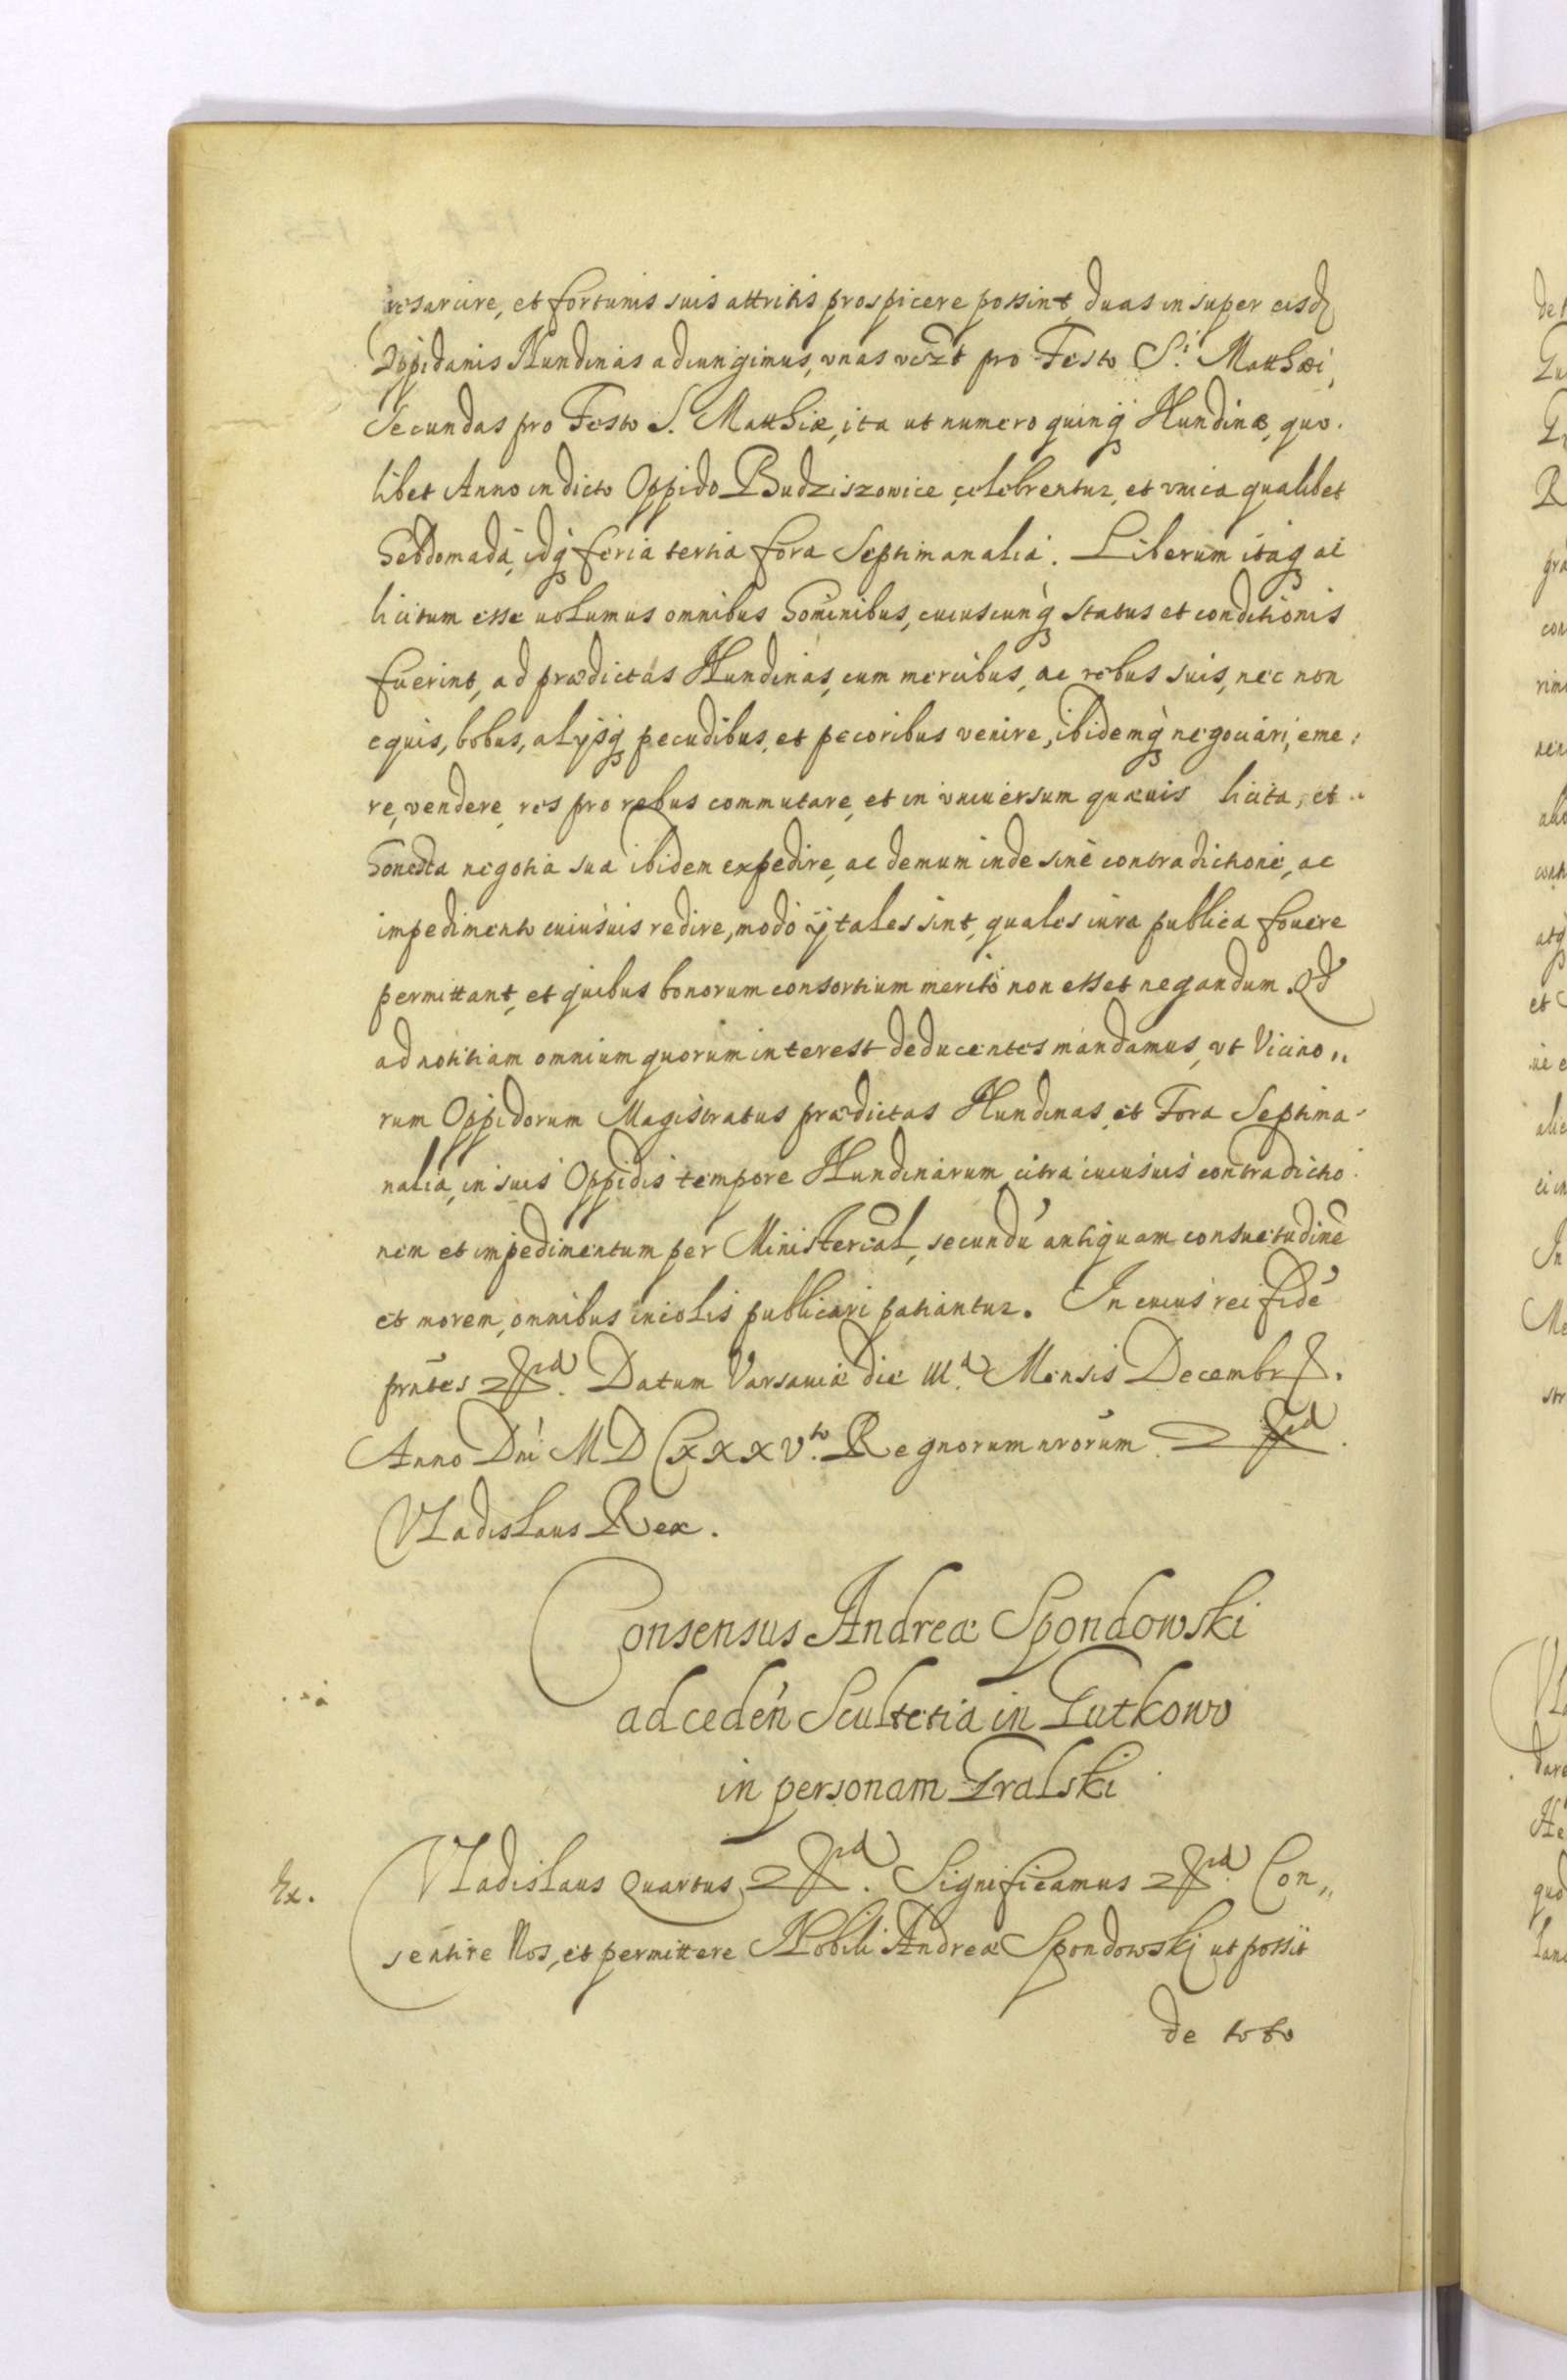 resarcire, et fortunis suis attritis prospicere possint, duas insuper eisd
Oppidanis Nundinas adiungimus, vnas vczt pro Festo S.i Matthæi,
Secundas pro Festo S. Matthiæ, ita ut numero quinq; Nundinæ, quo.
libet Anno in dicto Oppido Budziszowice celebrentur, et vnica qualibet
hebdomada, idq; feria tertia fora Septimanalia. Liberum itaq; ac
licitum esse uolumus omnibus hominibus, cuiuscunq; status et conditionis
fuerint, ad prædictas Nundinas, cum mercibus, ac rebus suis, nec non
equis, bobus, alijsq; pecudibus, et pecoribus venire, ibidemq; negociari, eme:
re, vendere, res pro rebus commutare, et in vniuersum quæuis licita, et
honesta negotia sua ibidem expedire, ac demum inde sine contradictione, ac
impedimento cuiusuis redire, modo ij tales sint, quales iura publica fouere
permittant, et quibus bonorum consortium merito non esset negandum. Qd
ad notitiam omnium quorum interest deducentes mandamus, vt Vicino„
rum Oppidorum Magistratus prædictas Nundinas, et Fora Septima-
nalia, in suis Oppidis tempore Nundinarum, citra cuiusuis contradictio
nem et impedimentum per Ministerial, secundū antiquam consuetudinē
et morem, omnibus incolis publicari patiantur. In cuius rei fidē
pr̄ntes &rd. Datum Varsauiæ die III.a Mensis Decembr.
Anno Dni MDCXXXV.to Regnorum nrorum &rd.
Vladislaus Rex.
Consensus Andreæ Spondowski
ad ceden̄ Scultetia in Gutkowo
in personam Gralski
Ex. Vladislaus Quartus &rd. Significamus &rd. Con„
sentire Nos, et permittere Nobili Andreæ Spondowski ut possit
de toto